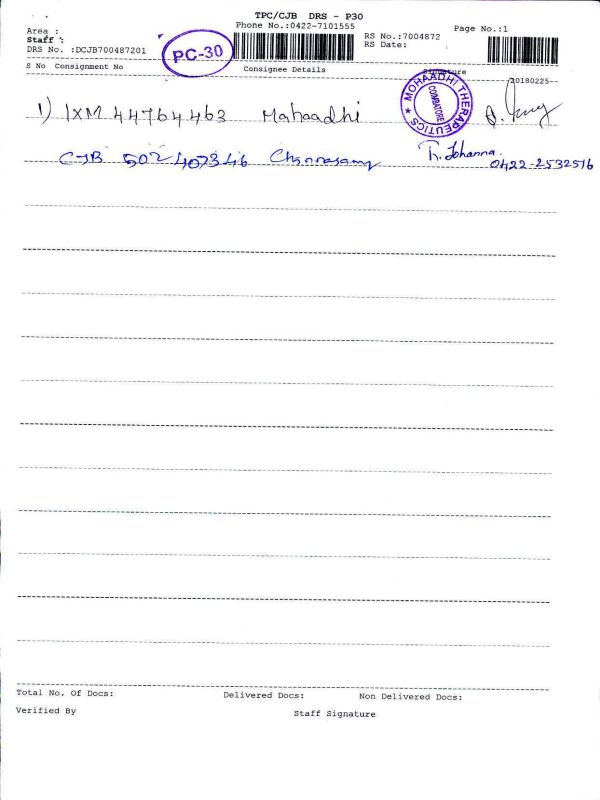 TPC/CJB DRS - P30
Phone No.:0422-7101555
Page No.:1
Area :
Staff :
DRS No. :DCJB700487201
PC-30
RS No.:7004872
RS Date:
S No Consignment No
Consignee Details
Signature
20180225--
1) IXM 44764463 Mahaadhi
MOHAADHI THERAPEUTICS
COIMBATORE
CJB 502407346 Chinnasamy
R. Johanna.
0422-2532516
Total No. Of Docs:
Delivered Docs:
Non Delivered Docs:
Verified By
Staff Signature